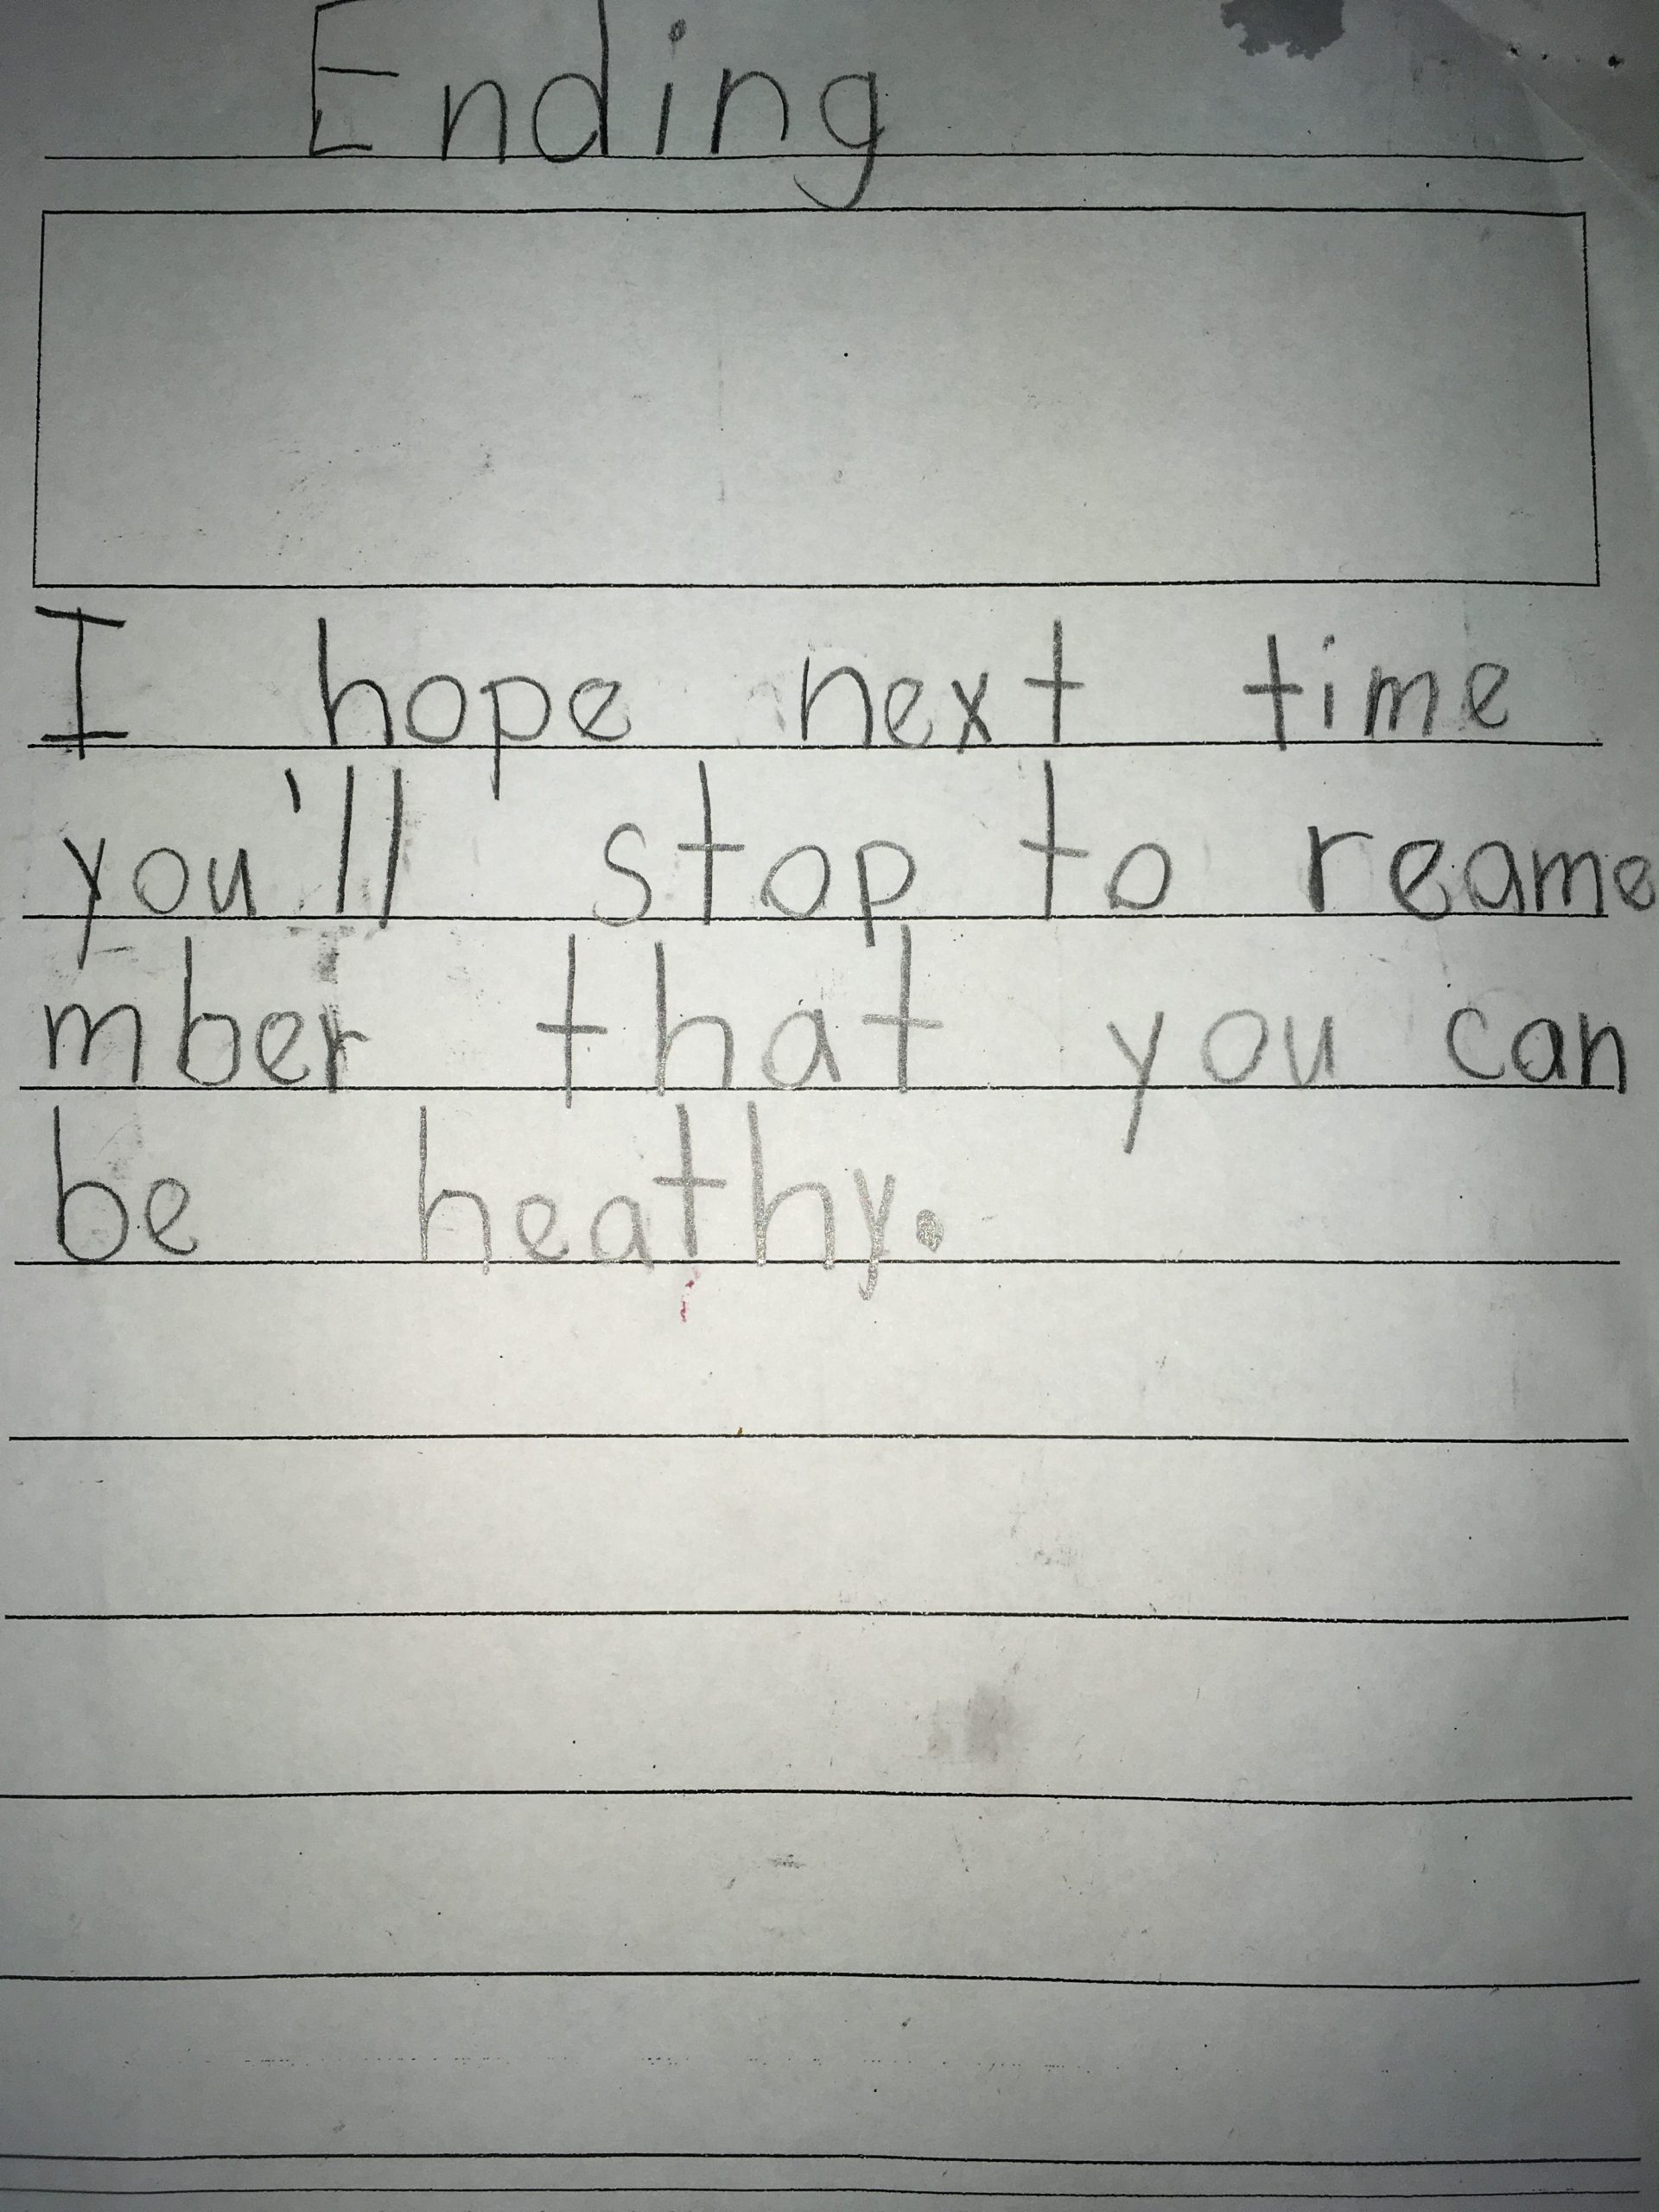 Ending
I hope next time
you'll stop to reame
mber that you can
be heathy.